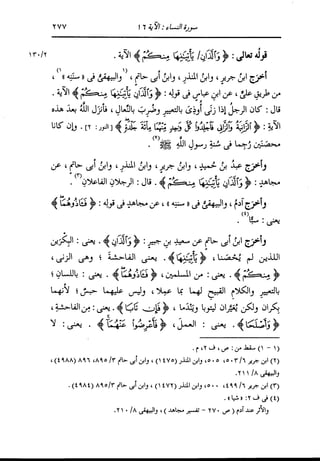 سورة النساء: الآية ١٦
٢٧٧
قوله تعالى: ﴿وَٱلَّذَانِ يَأْتِيَٰنِهَا مِنكُمْ﴾ الآية.
١٣٠/٢
أخرج ابنُ جريرٍ، وابنُ المنذرِ، وابنُ أبي حاتمٍ، (١)والبيهقيُّ في «سننه»(١)،
من طريقِ عليٍّ، عن ابنِ عباسٍ في قوله: ﴿وَٱلَّذَانِ يَأْتِيَٰنِهَا مِنكُمْ﴾ الآية.
قال: كان الرجلُ إذا زنَى أُوذِىَ بالتعييرِ وضُرِب بالنعالِ، فأنزل اللهُ بعدَ هذه
الآيةِ: ﴿ٱلزَّانِيَةُ وَٱلزَّانِى فَٱجْلِدُوا۟ كُلَّ وَٰحِدٍ مِّنْهُمَا مِا۟ئَةَ جَلْدَةٍ﴾ [النور: ٢]. وإن كانا
محصنَين رُجِما في سُنةِ رسولِ اللهِ ﷺ(٢).
وأخرج عبدُ بنُ حُميدٍ، وابنُ جريرٍ، وابنُ المنذرِ، وابنُ أبي حاتمٍ، عن
مجاهدٍ: ﴿وَٱلَّذَانِ يَأْتِيَٰنِهَا مِنكُمْ﴾. قال: الرجلان الفاعلان(٣).
وأخرج آدمُ، والبيهقيُّ في «سننه»، عن مجاهدٍ في قوله: ﴿فَـَٔاذُوهُمَا﴾
يعنى: سبًّا(٤).
وأخرج ابنُ أبي حاتمٍ عن سعيدِ بنِ جبيرٍ: ﴿وَٱلَّذَانِ﴾. يعنى: البِكْرَين
اللذين لم يُحْصَنا، ﴿يَأْتِيَٰنِهَا﴾. يعنى الفاحشةَ؛ وهى الزنى،
﴿مِنكُمْ﴾. يعنى: من المسلمين، ﴿فَـَٔاذُوهُمَا﴾. يعنى: باللسانِ؛
بالتعييرِ والكلامِ القبيحِ لهما بما عمِلا، وليس عليهما حبسٌ؛ لأنهما
بِكْران ولكن يُعيَّران ليتوبا ويَندَما، ﴿فَإِن تَابَا﴾. يعنى: من الفاحشةِ،
﴿وَأَصْلَحَا﴾. يعنى: العملَ، ﴿فَأَعْرِضُوا۟ عَنْهُمَآ﴾. يعنى: لا
(١ - ١) سقط من: ص، ف ٢، م.
(٢) ابن جرير ٥٠٣/٦، ٥٠٥، وابن المنذر (١٤٧٥)، وابن أبي حاتم ٨٩٥/٣، ٨٩٦ (٤٩٨٨)،
والبيهقى ٢١١/٨.
(٣) ابن جرير ٤٩٩/٦، ٥٠٠، وابن المنذر (١٤٧٢)، وابن أبي حاتم ٨٩٥/٣ (٤٩٨٤).
(٤) فى ف ٢: «شيئا».
والأثر عند آدم (ص ٢٧٠ - تفسير مجاهد)، والبيهقى ٢١٠/٨.